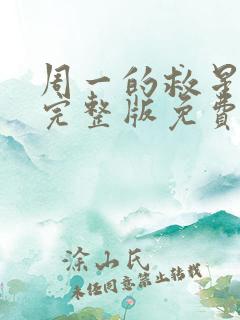 周一的救星
完整版免費
涂山氏
未经同意禁止转载